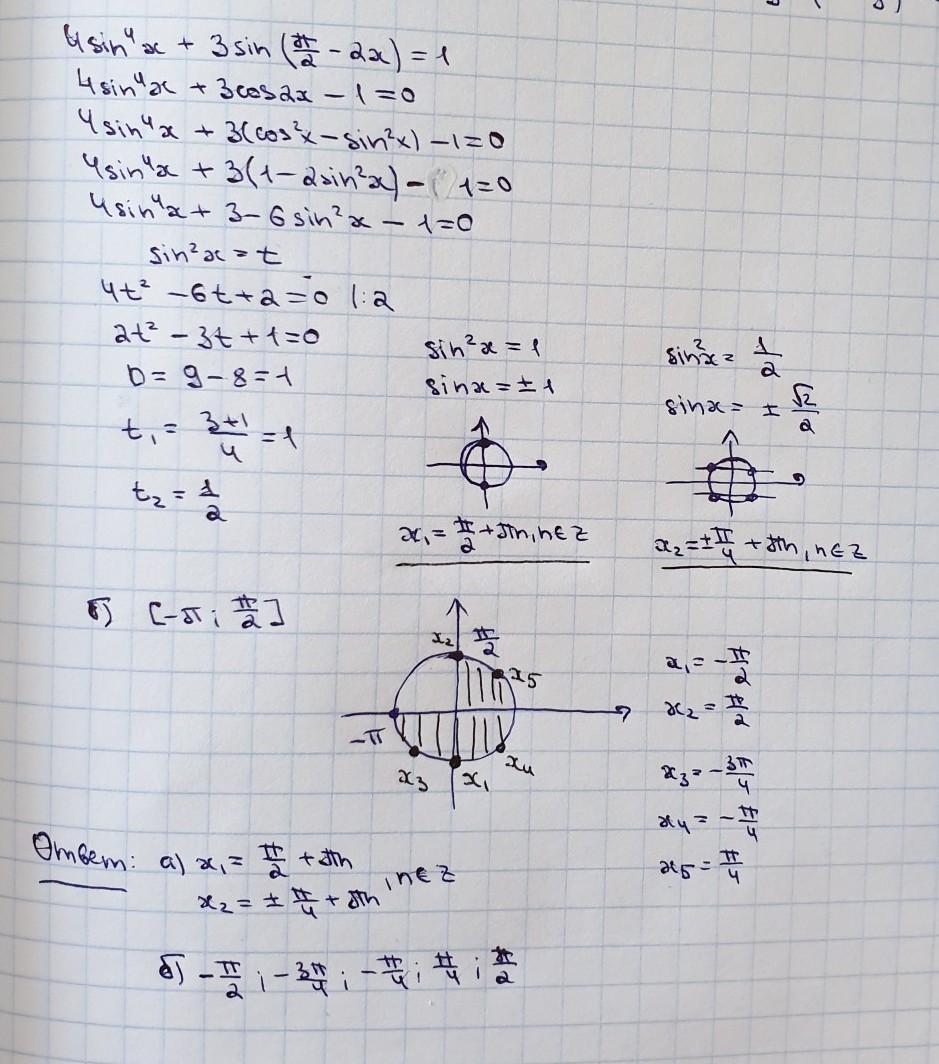 4sin⁴x + 3sin(π/2 - 2x) = 1
4sin⁴x + 3cos2x - 1 = 0
4sin⁴x + 3(cos²x - sin²x) - 1 = 0
4sin⁴x + 3(1 - 2sin²x) - 1 = 0
4sin⁴x + 3 - 6sin²x - 1 = 0
sin²x = t
4t² - 6t + 2 = 0 |:2
2t² - 3t + 1 = 0
D = 9 - 8 = 1
t₁ = (3+1)/4 = 1
t₂ = 1/2
sin²x = 1
sinx = ±1
x₁ = π/2 + πn, n∈Z
sin²x = 1/2
sinx = ± √2/2
x₂ = ±π/4 + πn, n∈Z
б) [-π; π/2]
x₂ π/2
x₅
-π
x₃ x₁ x₄
x₁ = -π/2
x₂ = π/2
x₃ = -3π/4
x₄ = -π/4
x₅ = π/4
Ответ: а) x₁ = π/2 + πn
x₂ = ± π/4 + πn , n∈Z
б) -π/2; -3π/4; -π/4; π/4; π/2